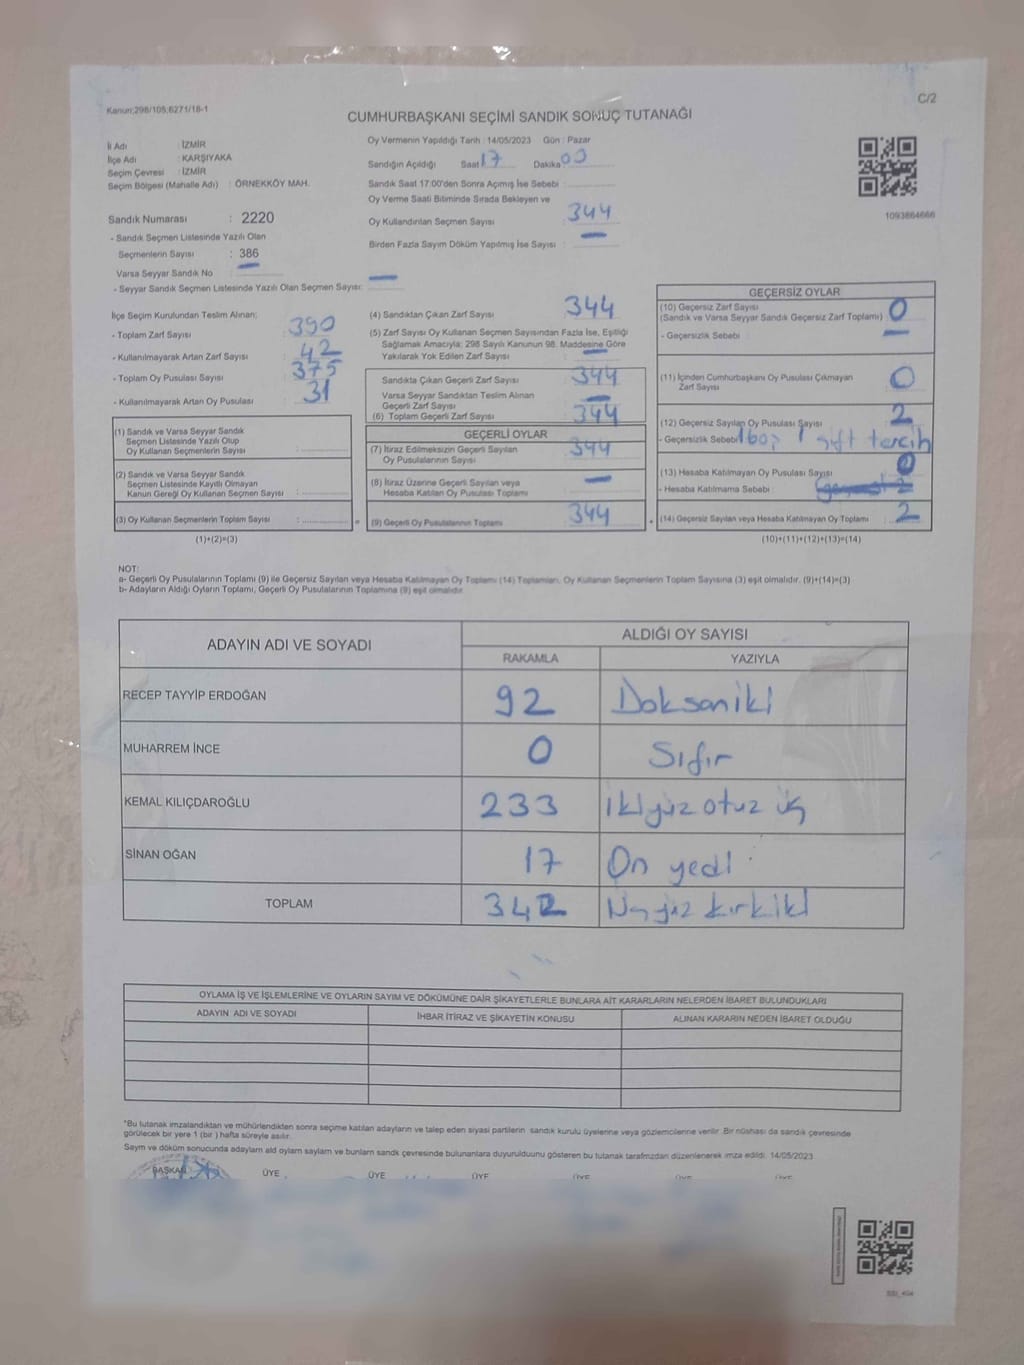 Kanun:298/105;6271/18-1
C/2
CUMHURBAŞKANI SEÇİMİ SANDIK SONUÇ TUTANAĞI
İl Adı : İZMİR
İlçe Adı : KARŞIYAKA
Seçim Çevresi : İZMİR
Seçim Bölgesi (Mahalle Adı) : ÖRNEKKÖY MAH.
Sandık Numarası : 2220
- Sandık Seçmen Listesinde Yazılı Olan
Seçmenlerin Sayısı : 386
Varsa Seyyar Sandık No : —
- Seyyar Sandık Seçmen Listesinde Yazılı Olan Seçmen Sayısı: —
Oy Vermenin Yapıldığı Tarih : 14/05/2023 Gün : Pazar
Sandığın Açıldığı Saat 17 Dakika 00
Sandık Saat 17:00'den Sonra Açımış İse Sebebi :
Oy Verme Saati Bitiminde Sırada Bekleyen ve
Oy Kullandırılan Seçmen Sayısı : 344
Birden Fazla Sayım Döküm Yapılmış İse Sayısı : —
1093864666
İlçe Seçim Kurulundan Teslim Alınan;
- Toplam Zarf Sayısı : 390
- Kullanılmayarak Artan Zarf Sayısı : 42
- Toplam Oy Pusulası Sayısı : 375
- Kullanılmayarak Artan Oy Pusulası : 31
(1) Sandık ve Varsa Seyyar Sandık
Seçmen Listesinde Yazılı Olup
Oy Kullanan Seçmenlerin Sayısı :
(2) Sandık ve Varsa Seyyar Sandık
Seçmen Listesinde Kayıtlı Olmayan
Kanun Gereği Oy Kullanan Seçmen Sayısı :
(3) Oy Kullanan Seçmenlerin Toplam Sayısı : =
(1)+(2)=(3)
(4) Sandıktan Çıkan Zarf Sayısı : 344
(5) Zarf Sayısı Oy Kullanan Seçmen Sayısından Fazla İse, Eşitliği
Sağlamak Amacıyla; 298 Sayılı Kanunun 98. Maddesine Göre
Yakılarak Yok Edilen Zarf Sayısı : —
Sandıkta Çıkan Geçerli Zarf Sayısı : 344
Varsa Seyyar Sandıktan Teslim Alınan
Geçerli Zarf Sayısı : —
(6) Toplam Geçerli Zarf Sayısı : 344
GEÇERLİ OYLAR
(7) İtiraz Edilmeksizin Geçerli Sayılan
Oy Pusulalarının Sayısı : 344
(8) İtiraz Üzerine Geçerli Sayılan veya
Hesaba Katılan Oy Pusulası Toplamı : —
(9) Geçerli Oy Pusulalarının Toplamı : 344 +
GEÇERSİZ OYLAR
(10) Geçersiz Zarf Sayısı
(Sandık ve Varsa Seyyar Sandık Geçersiz Zarf Toplamı) : 0
- Geçersizlik Sebebi : —
(11) İçinden Cumhurbaşkanı Oy Pusulası Çıkmayan
Zarf Sayısı : 0
(12) Geçersiz Sayılan Oy Pusulası Sayısı : 2
- Geçersizlik Sebebi 1 boş 1 çift tercih
(13) Hesaba Katılmayan Oy Pusulası Sayısı 0
- Hesaba Katılmama Sebebi :
(14) Geçersiz Sayılan veya Hesaba Katılmayan Oy Toplamı : 2
(10)+(11)+(12)+(13)=(14)
NOT:
a- Geçerli Oy Pusulalarının Toplamı (9) ile Geçersiz Sayılan veya Hesaba Katılmayan Oy Toplamı (14) Toplamları, Oy Kullanan Seçmenlerin Toplam Sayısına (3) eşit olmalıdır. (9)+(14)=(3)
b- Adayların Aldığı Oyların Toplamı, Geçerli Oy Pusulalarının Toplamına (9) eşit olmalıdır.
ADAYIN ADI VE SOYADI ALDIĞI OY SAYISI
RAKAMLA YAZIYLA
RECEP TAYYİP ERDOĞAN 92 Doksaniki
MUHARREM İNCE 0 Sıfır
KEMAL KILIÇDAROĞLU 233 ikiyüz otuz üç
SİNAN OĞAN 17 On yedi
TOPLAM 342 Üçyüz kırkiki
OYLAMA İŞ VE İŞLEMLERİNE VE OYLARIN SAYIM VE DÖKÜMÜNE DAİR ŞİKAYETLERLE BUNLARA AİT KARARLARIN NELERDEN İBARET BULUNDUKLARI
ADAYIN ADI VE SOYADI İHBAR İTİRAZ VE ŞİKAYETİN KONUSU ALINAN KARARIN NEDEN İBARET OLDUĞU
*Bu tutanak imzalandıktan ve mühürlendikten sonra seçime katılan adayların ve talep eden siyasi partilerin sandık kurulu üyelerine veya gözlemcilerine verilir .Bir nüshası da sandık çevresinde
görülecek bir yere 1 (bir ) hafta süreyle asılır.
Sayım ve döküm sonucunda adayların ald oyların sayların ve bunların sandk çevresinde bulunanlara duyurulduunu gösteren bu tutanak tarafmzdan düzenlenerek imza edildi. 14/05/2023
BAŞKAN ÜYE ÜYE ÜYE ÜYE ÜYE ÜYE